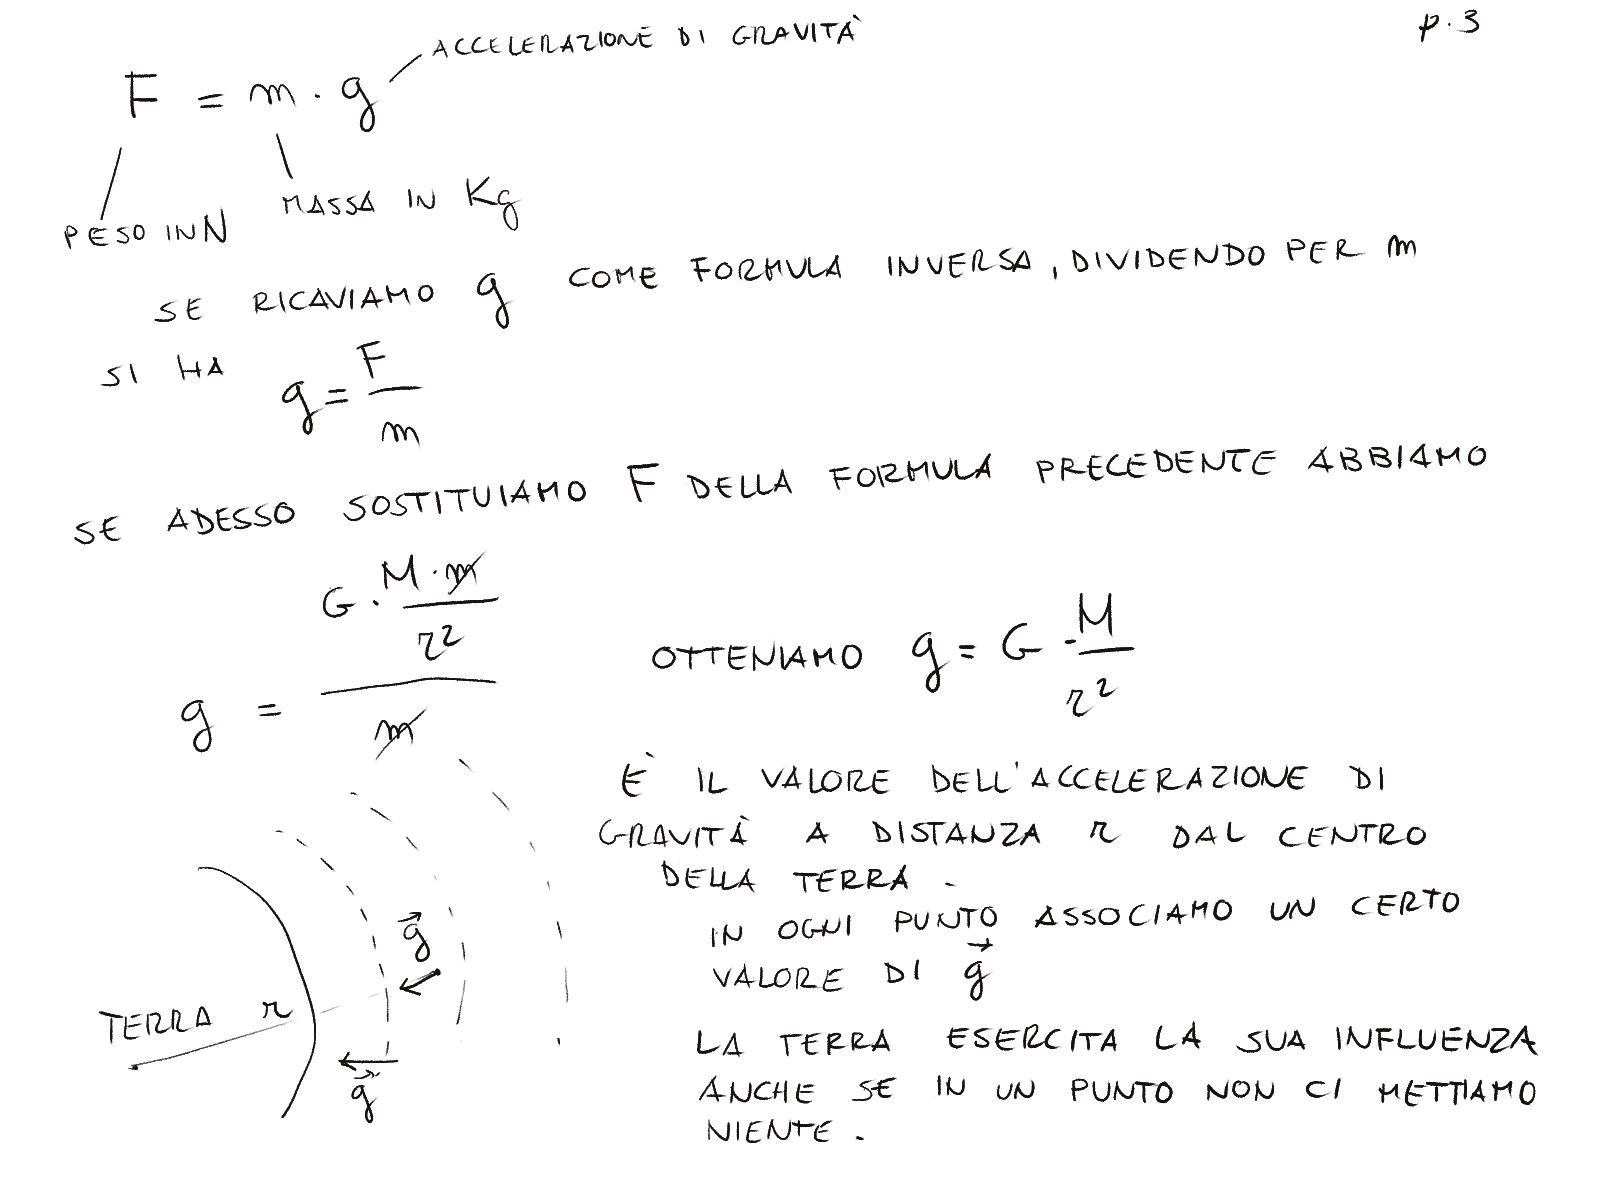 p.3
ACCELERAZIONE DI GRAVITÀ
F = m · g
PESO IN N
MASSA IN Kg
SE RICAVIAMO g COME FORMULA INVERSA, DIVIDENDO PER m
SI HA
g = F/m
SE ADESSO SOSTITUIAMO F DELLA FORMULA PRECEDENTE ABBIAMO
G · M · m
r²
g =
m
OTTENIAMO g = G · M/r²
È IL VALORE DELL'ACCELERAZIONE DI
GRAVITÀ A DISTANZA r DAL CENTRO
DELLA TERRA.
IN OGNI PUNTO ASSOCIAMO UN CERTO
VALORE DI g⃗
g⃗
TERRA r
g⃗
LA TERRA ESERCITA LA SUA INFLUENZA
ANCHE SE IN UN PUNTO NON CI METTIAMO
NIENTE.